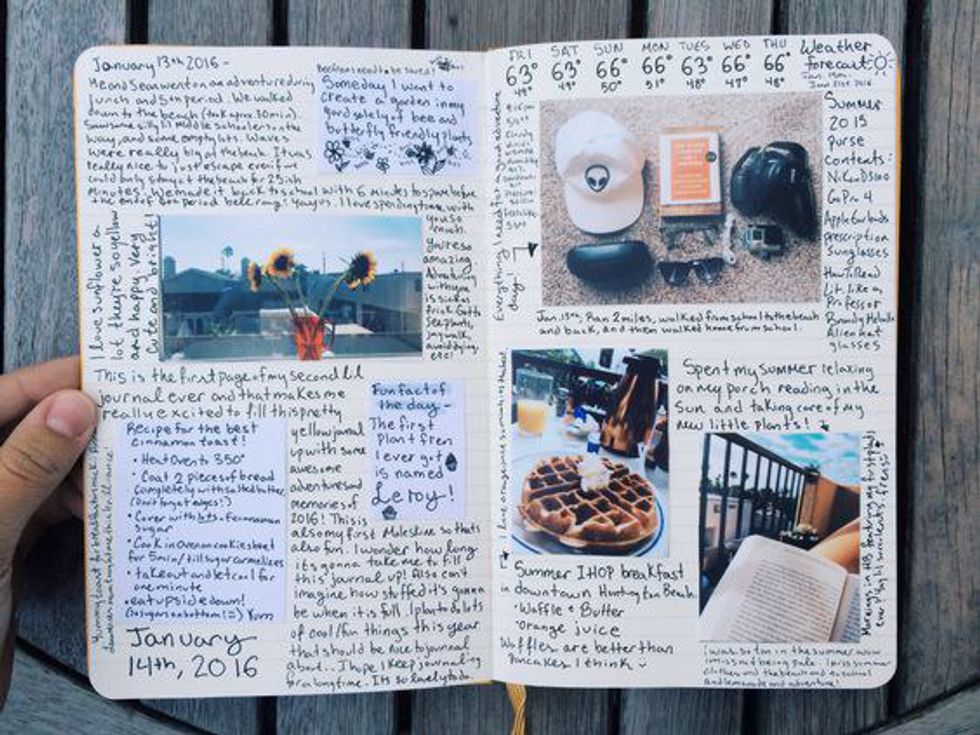 January 13th 2016 -
Me and Sean went on an adventure during
lunch and 5th period. We walked
down to the beach (took aprox 30min)
Saw some silly lil middle schoolers on the
way, and some empty lots. Waves
were really big at the beach. It was
really nice to just escape even if we
could only stay at the beach for 25ish
minutes. We made it back to school with 6 minutes to spare before
the end of 5th period bell rang! Yay us. I love spending time with
you so
much.
You're so
amazing.
Adventuring
with you
is sick as
frick. Gotta
see plants,
jay walk,
avoid dying,
etc!
Bees need to be saved!
Someday I want to
create a garden in my
yard solely of bee and
butterfly friendly plants
I love sunflower a
lot they're so yellow
and happy. Very
cute and bright!
This is the first page of my second lil
journal ever and that makes me
really excited to fill this pretty
yellow journal
up with some
awesome
adventures and
memories of
2016! This is
also my first Moleskine so that's
also fun. I wonder how long
it's gonna take me to fill
this journal up! Also can't
imagine how stuffed it's gonna
be when it is full. I plan to do lots
of cool/fun things this year
that should be nice to journal
about.. I hope I keep journaling
for a long time. Its so lovely to do.
Fun fact of
the day -
The first
plant fren
I ever got
is named
Leroy!
Recipe for the best
cinnamon toast!
• Heat Oven to 350°
• Coat 2 pieces of bread
completely with salted butter
(don't forget edges!)
• Cover with lots of cinnamon
sugar
• Cook in oven on cookie sheet
for 5min/till sugar carmelizes
• take out and let cool for
one minute
• eat upside down!
(so sugar on bottom!) Yum
January
14th, 2016
FRI SAT SUN MON TUES WED THU
63° 63° 66° 66° 63° 66° 66°
49° 49° 50° 51° 48° 47° 48°
Weather
forecast
Everything I need for a good adventure
day!
Summer
2015
purse
contents:
Nikon D3100
GoPro 4
Apple Earbuds
prescription
Sunglasses
How To Read
Lit. like a
Professor
Brandy Melville
Alien hat
glasses
Jan. 13th, Ran 2 miles, walked from school to the beach
and back, and then walked home from school.
Spent my summer relaxing
on my porch reading in the
sun and taking care of my
new little plants!
Summer IHOP breakfast
in downtown Huntington Beach
• Waffle & Butter
• Orange juice
Waffles are better than
Pancakes I think
I was so tan in the summer wow
I miss not being pale. I miss summer
clothes and the beach and
and lemonade and adventure!